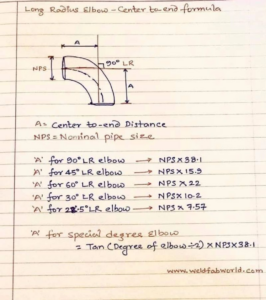 Long Radius Elbow - Center to end formula
A
NPS
90° LR
A
A = Center to-end Distance
NPS = Nominal pipe size
'A' for 90° LR elbow → NPS×38.1
'A' for 45° LR elbow → NPS×15.9
'A' for 60° LR elbow → NPS×22
'A' for 30° LR elbow → NPS×10.2
'A' for 22.5° LR elbow → NPS×7.57
'A' for special degree Elbow
= Tan (Degree of elbow ÷ 2) × NPS×38.1
www.weldfabworld.com